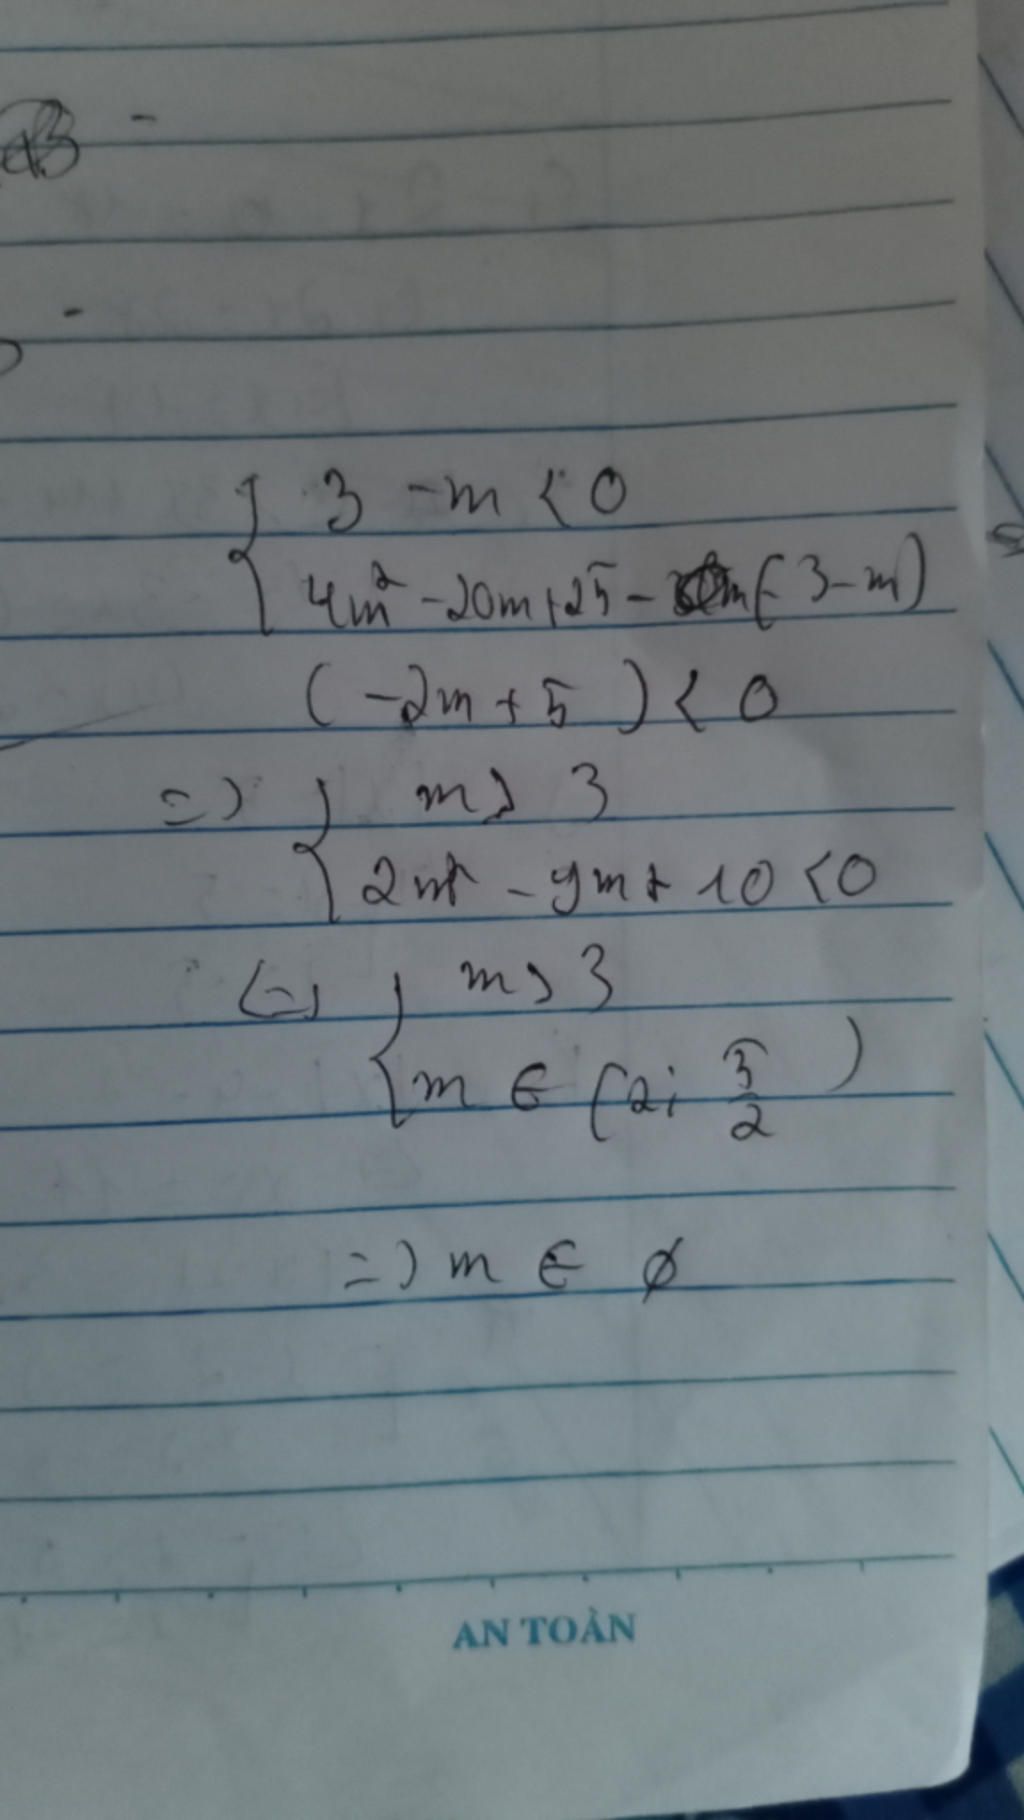 { 3 - m < 0
4m² - 20m + 25 - (3 - m)
(-2m + 5) < 0
=> { m > 3
2m² - 9m + 10 < 0
<=> { m > 3
m ∈ (2; 5/2)
=> m ∈ ∅
AN TOÀN